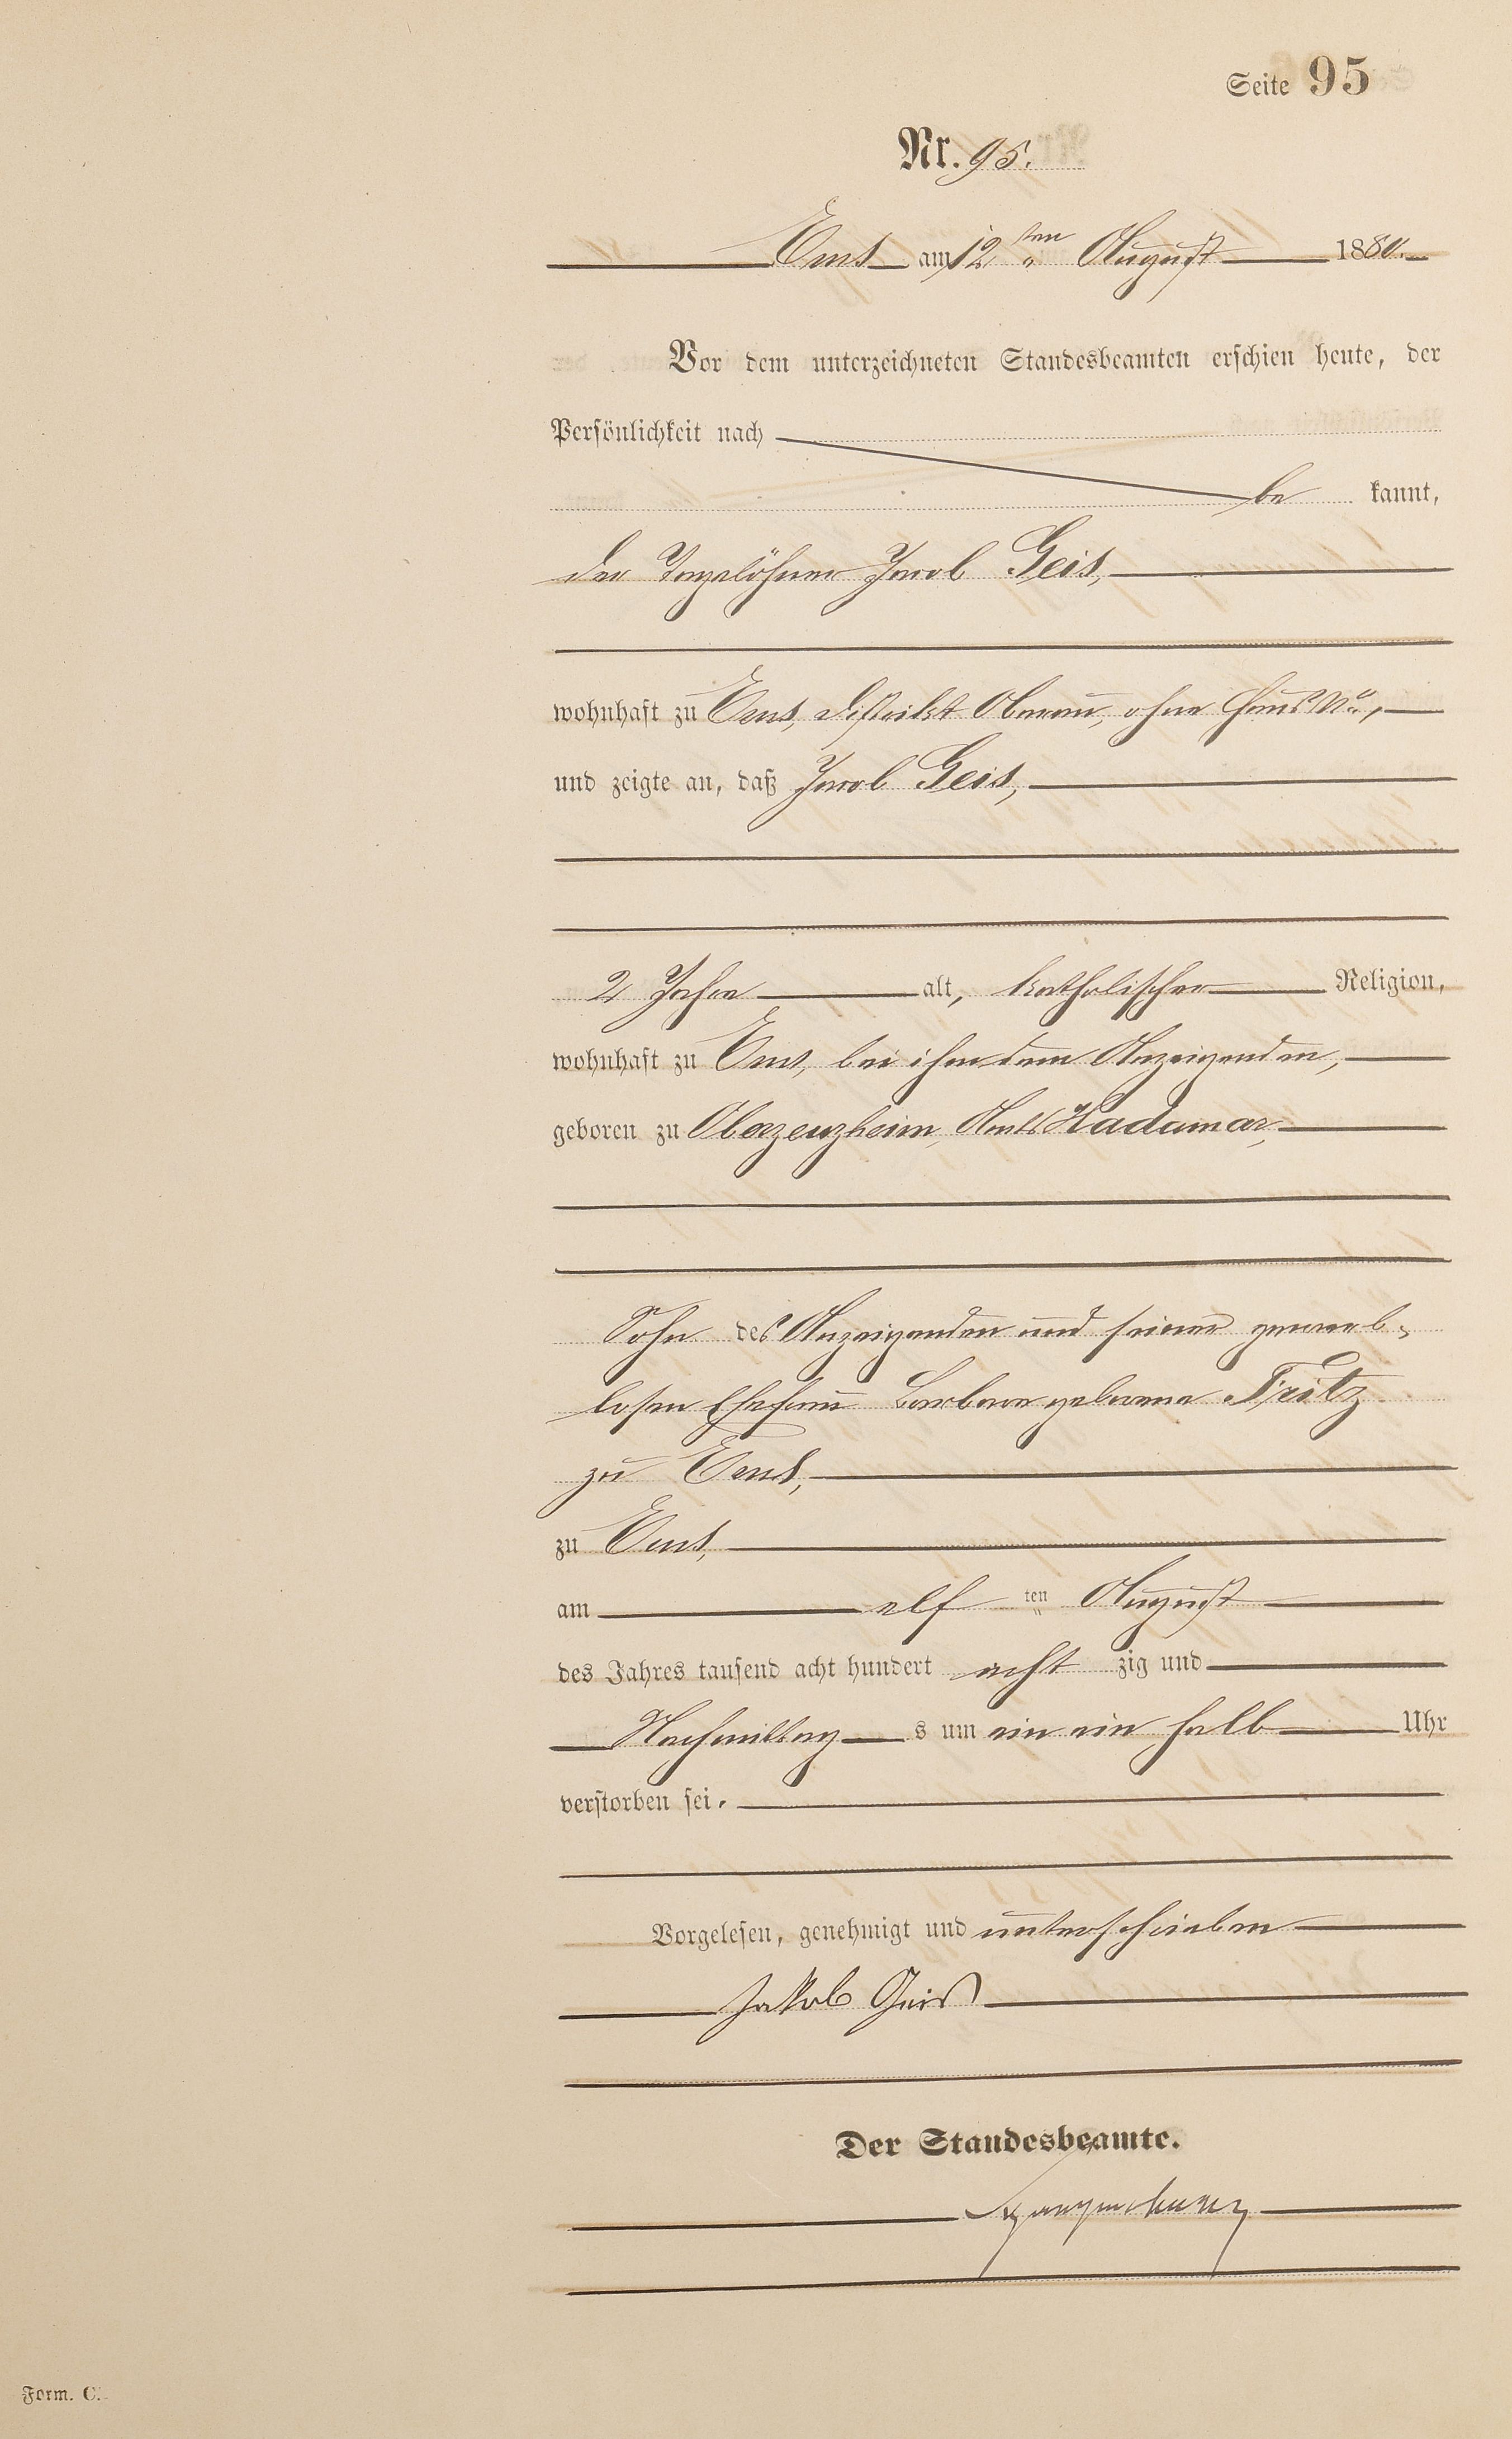 Seite 95
Nr. 95.
Ems am 12ten August 1880.
Vor dem unterzeichneten Standesbeamten erschien heute, der
Persönlichkeit nach
be kannt,
der Tagelöhner Jacob Geis,
wohnhaft zu Ems, Distrikt Oberau, ohne Haus No,
und zeigte an, daß Jacob Geis,
2 Jahre alt, katholischer Religion,
wohnhaft zu Ems, bei ihm dem Anzeigenden,
geboren zu Oberzeuzheim, Amts Hadamar,
Sohn des Anzeigenden und seiner gewerb-
losen Ehefrau Barbara geborene Fritz
zu Ems,
zu Ems,
am elf ten August
des Jahres tausend acht hundert acht zig und
Nachmittag s um ein ein halb Uhr
verstorben sei.
Vorgelesen, genehmigt und unterschrieben
Jakob Geis
Der Standesbeamte.
Form. C.